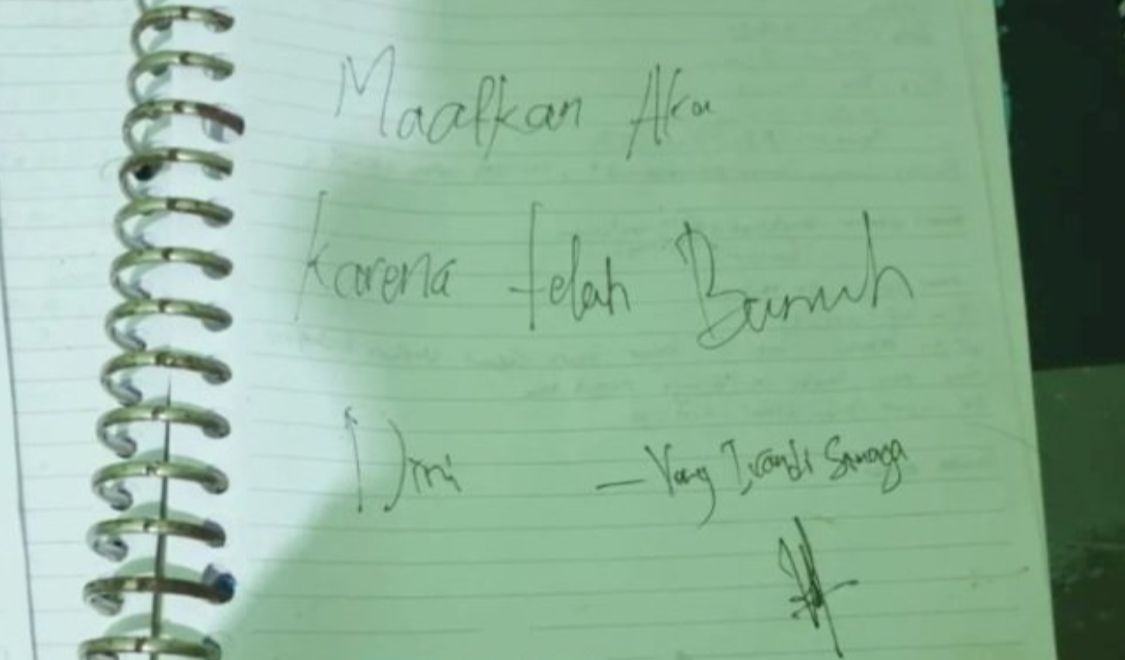 Maafkan Aku
Karena telah Bunuh
Diri — Yang Irvandi Sinaga